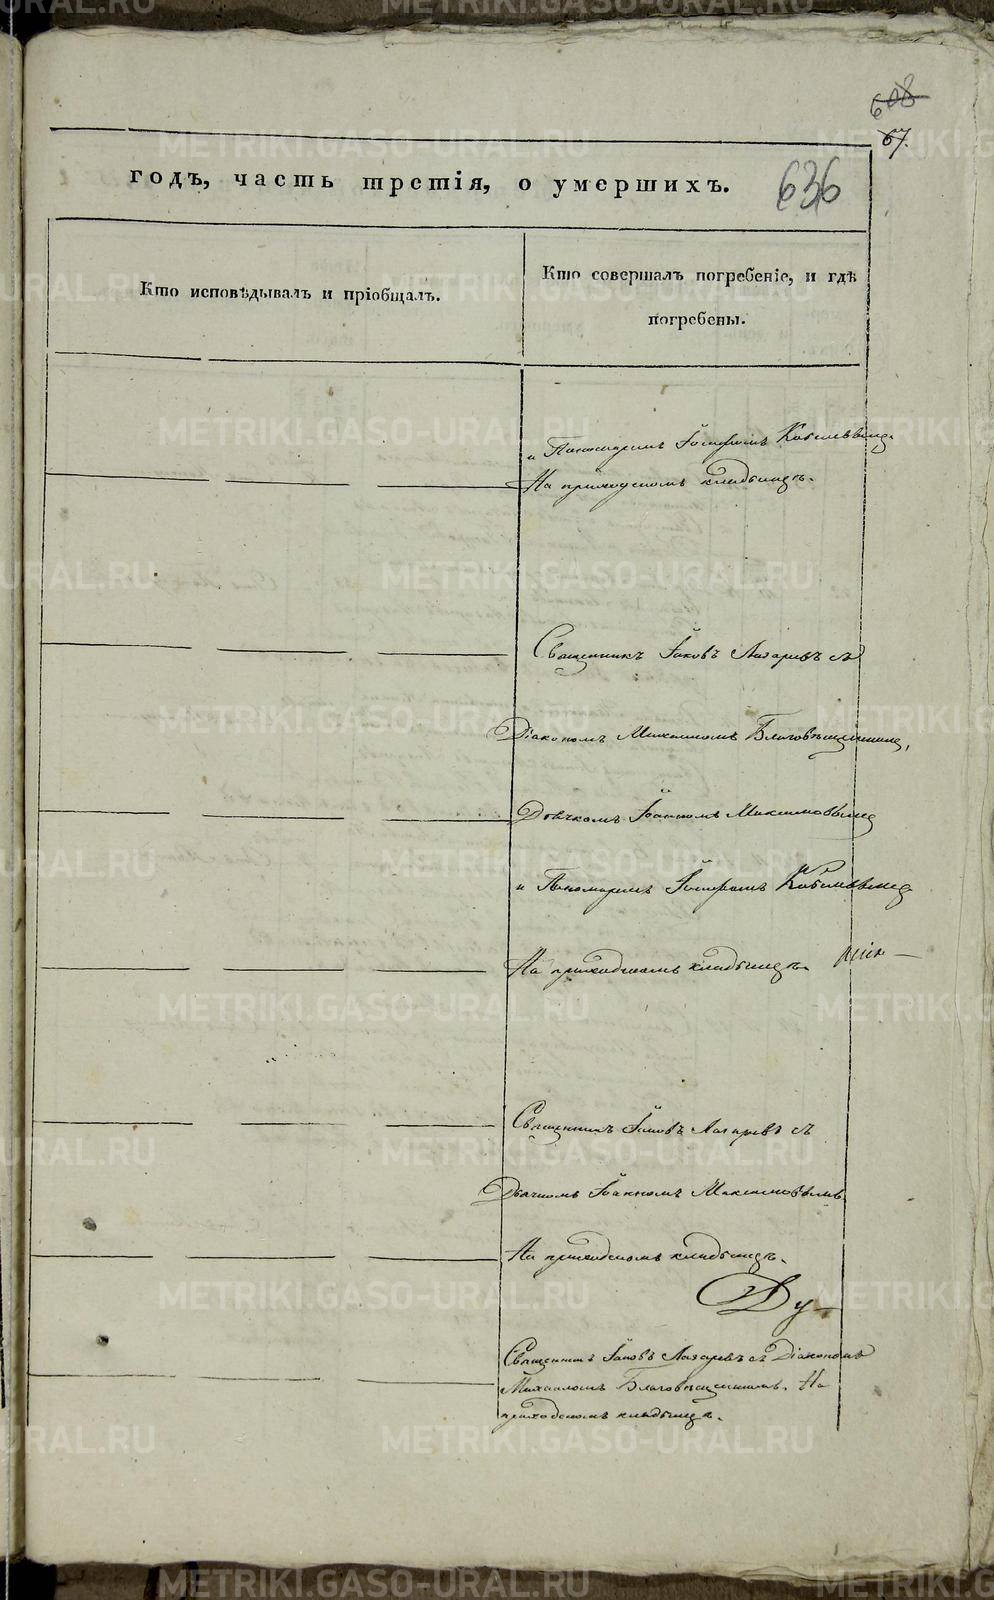 608
67.
годъ, часть третія, о умершихъ.
636
Кто исповѣдывалъ и пріобщалъ.
Кто совершалъ погребеніе, и гдѣ
погребены.
и Пономаремъ Іосифомъ Кобылевымъ
На приходскомъ кладбищѣ.
Священникъ Іаковъ Лазаревъ съ
Діакономъ Михаиломъ Благовѣщенскимъ,
Дьячкомъ Іоанномъ Максимовымъ
и Пономаремъ Іосифомъ
На приходскомъ кладбищѣ.
Священникъ Іаковъ Лазаревъ съ
Дьячкомъ Іоанномъ Максимовымъ.
На приходскомъ кладбищѣ.
Ду-
Священникъ Іаковъ Лазаревъ съ Діакономъ
Михаиломъ Благовѣщенскимъ. На
приходскомъ кладбищѣ.
METRIKI.GASO-URAL.RU